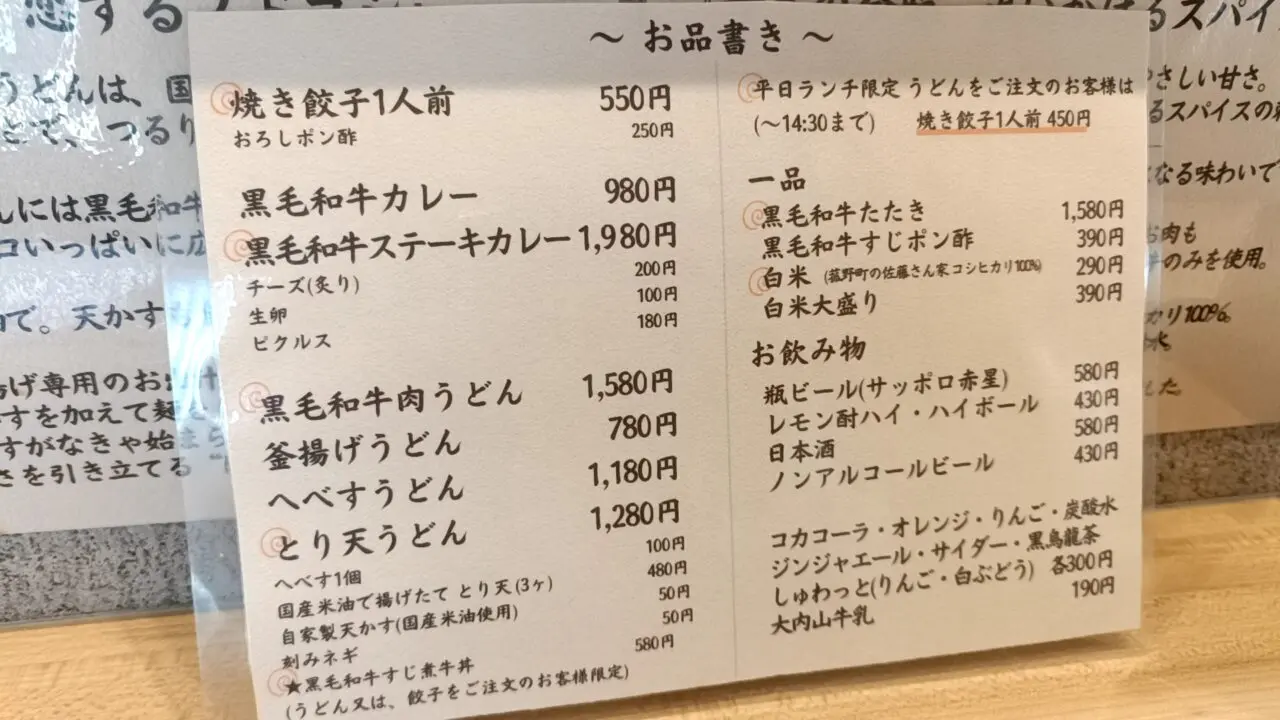 ～ お品書き ～
焼き餃子1人前 550円
おろしポン酢 250円
黒毛和牛カレー 980円
黒毛和牛ステーキカレー 1,980円
チーズ(炙り) 200円
生卵 100円
ピクルス 180円
黒毛和牛肉うどん 1,580円
釜揚げうどん 780円
へべすうどん 1,180円
とり天うどん 1,280円
へべす1個 100円
国産米油で揚げたて とり天(3ヶ) 480円
自家製天かす(国産米油使用) 50円
刻みネギ 50円
★黒毛和牛すじ煮牛丼 580円
(うどん又は、餃子をご注文のお客様限定)
平日ランチ限定 うどんをご注文のお客様は
(～14:30まで) 焼き餃子1人前 450円
一品
黒毛和牛たたき 1,580円
黒毛和牛すじポン酢 390円
白米 (菰野町の佐藤さん家コシヒカリ100%) 290円
白米大盛り 390円
お飲み物
瓶ビール(サッポロ赤星) 580円
レモン酎ハイ・ハイボール 430円
日本酒 580円
ノンアルコールビール 430円
コカコーラ・オレンジ・りんご・炭酸水
ジンジャエール・サイダー・黒烏龍茶
しゅわっと(りんご・白ぶどう) 各300円
大内山牛乳 190円
うどんは、国
つるり
んには黒毛和牛
コいっぱいに広
で。天かす
げ専用のお
すを加えて麺
すがなきゃ始まら
さを引き立てる
スパイ
やさしい甘さ。
るスパイスの
なる味わいで
お肉も
牛のみを使用。
カリ100%。
水。
した。